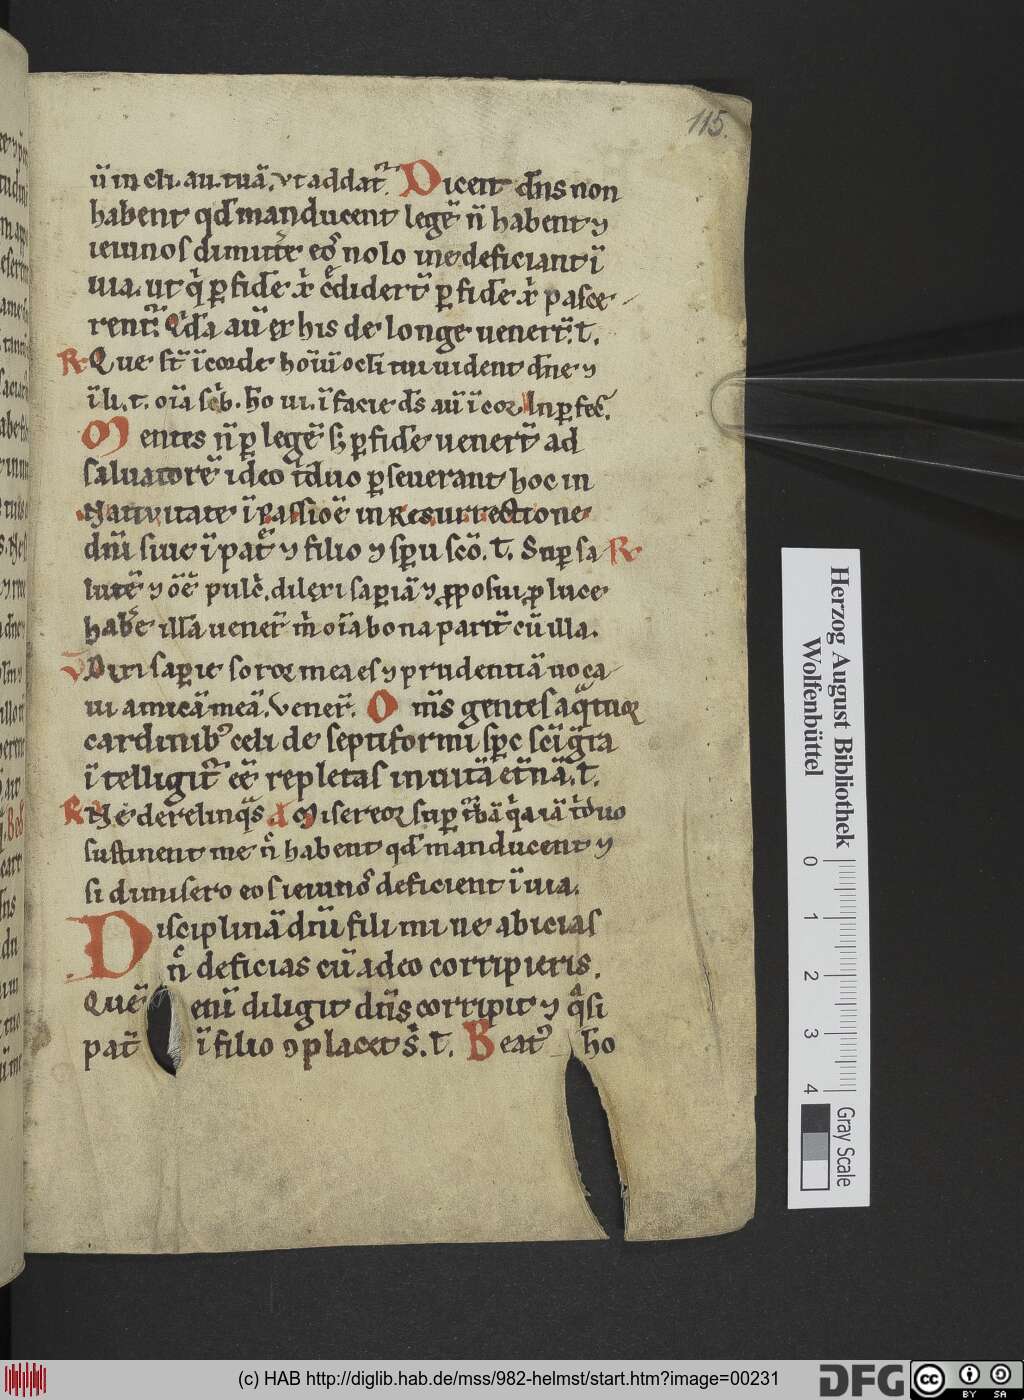 115.
ū in eli. au. tuā. vt addat᷑. Dicent dn̄s non
habent qd̄ manducent legē n̄ habent ⁊
ieiunos dimitte eos nolo ne deficiant ī
uia. ut q̇ p̱ fidē xp̄i c̄didert̄ p̱ fidē xp̄i pasce
rent᷑. Qdā aū ex his de longe uenert̄. t̄.
R Que st̄ ī corde hoīuī ocl̄i tui uident dn̄e ⁊
ī li. t. oīa scb̄. ho ui. ī facie ds̄ aū ī cor. In p̱fec̄.
Mentes n̄ p̱ legē s; p̱ fidē uenert̄ ad
saluatorē ideo t̄duo p̱seuerant hoc in
Natiuitate ī Passiōe in Resurrectione
dn̄i siue ī patre ⁊ filio ⁊ sp̄u scō. t̄. Sup̱ sa R
lutē ⁊ ōē pulc̄. dilexi sap̱iā ⁊ p̱posui p̱ luce
habe illā uener̄ m̄ oīa bona parit̄ cū illa.
V Dixi sap̱ie soror mea es ⁊ prudentiā uoca
ui amicā meā. Vener̄. Om̄s gentes a q̄tuor
cardinib⁹ celi de septiformi sp̄c sc̄i gr̄ia
ītelligit᷑ eē repletas in uitā et̄nā. t̄.
R Ne derelinq̄s A Misereor sup̱ t̄bā q̄ a iā t̄duo
sustinent me n̄ habent qd̄ manducent ⁊
si dimisero eos ieiunos deficient ī uia.
Disciplinā dn̄i fili mi ne abicias
n̄ deficias cū ad eo corripieris.
Quē enī diligit dn̄s corripit ⁊ q̄si
pat̄ ī filio ⁊placet s̄. t̄. Beat⁹ ho
Herzog August Bibliothek
Wolfenbüttel
0 1 2 3 4
Gray Scale
(c) HAB http://diglib.hab.de/mss/982-helmst/start.htm?image=00231
DFG
cc BY SA